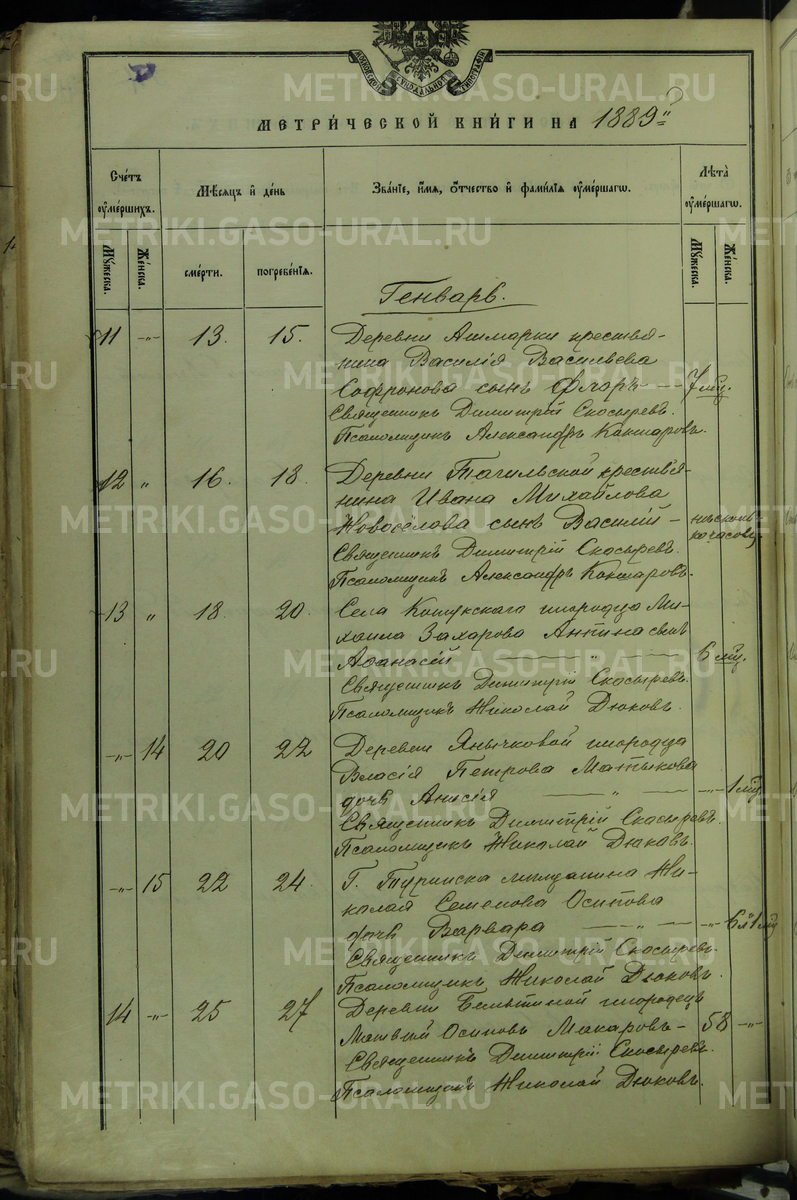 МОСКОВСКОЙ СѴНОДАЛЬНОЙ ТИПОГРАФІИ
МЕТРИ́ЧЕСКОЙ КНИ́ГИ НА 1889 г.
Сче́тъ ѹ҆ме́ршихъ.
Мѣ́сѧцъ и҆ де́нь
Зва́нїе, и҆́мѧ, ѻ҆́тчество и҆ фами́лїѧ ѹ҆ме́ршагѡ.
Лѣта̀ ѹ҆ме́ршагѡ.
Мꙋ́жеска.
Же́нска.
сме́рти.
погребе́нїѧ.
Мꙋ́жеска.
Же́нска.
Генварь.
11 -"- 13. 15. Деревни Ашмарки крестья-
нина Василія Васильева
Софронова сынъ Флоръ — 7 мѣц.
Священникъ Димитрій Скосыревъ.
Псаломщикъ Александръ Кокшаровъ.
12 " 16. 18. Деревни Тагильской крестья-
нина Ивана Михайлова
Новосёлова сынъ Василій — нѣсколь-
ко часовъ
Священникъ Димитрій Скосыревъ.
Псаломщикъ Александръ Кокшаровъ.
13 " 18. 20. Села Кошукскаго инородца Ми-
хаила Захарова Антина сынъ
Аѳанасій — " — 6 мѣц.
Священникъ Димитрій Скосыревъ.
Псаломщикъ Николай Дюковъ.
-"- 14 20 22 Деревни Янычковой инородца
Власія Петрова Матыкова
дочь Анисія — " — -"- 1 мѣц.
Священникъ Димитрій Скосыревъ.
Псаломщикъ Николай Дюковъ.
-"- 15 22 24. Г. Туринска мещанина Ни-
колая Семенова Осипова
дочь Варвара — " — -"- 6 л. 1 мѣц
Священникъ Димитрій Скосыревъ.
Псаломщикъ Николай Дюковъ.
14 -"- 25 27 Деревни инородецъ
Матвѣй Осиповъ Макаровъ — 58 -"-
Священникъ Димитрій Скосыревъ.
Псаломщикъ Николай Дюковъ.
METRIKI.GASO-URAL.RU